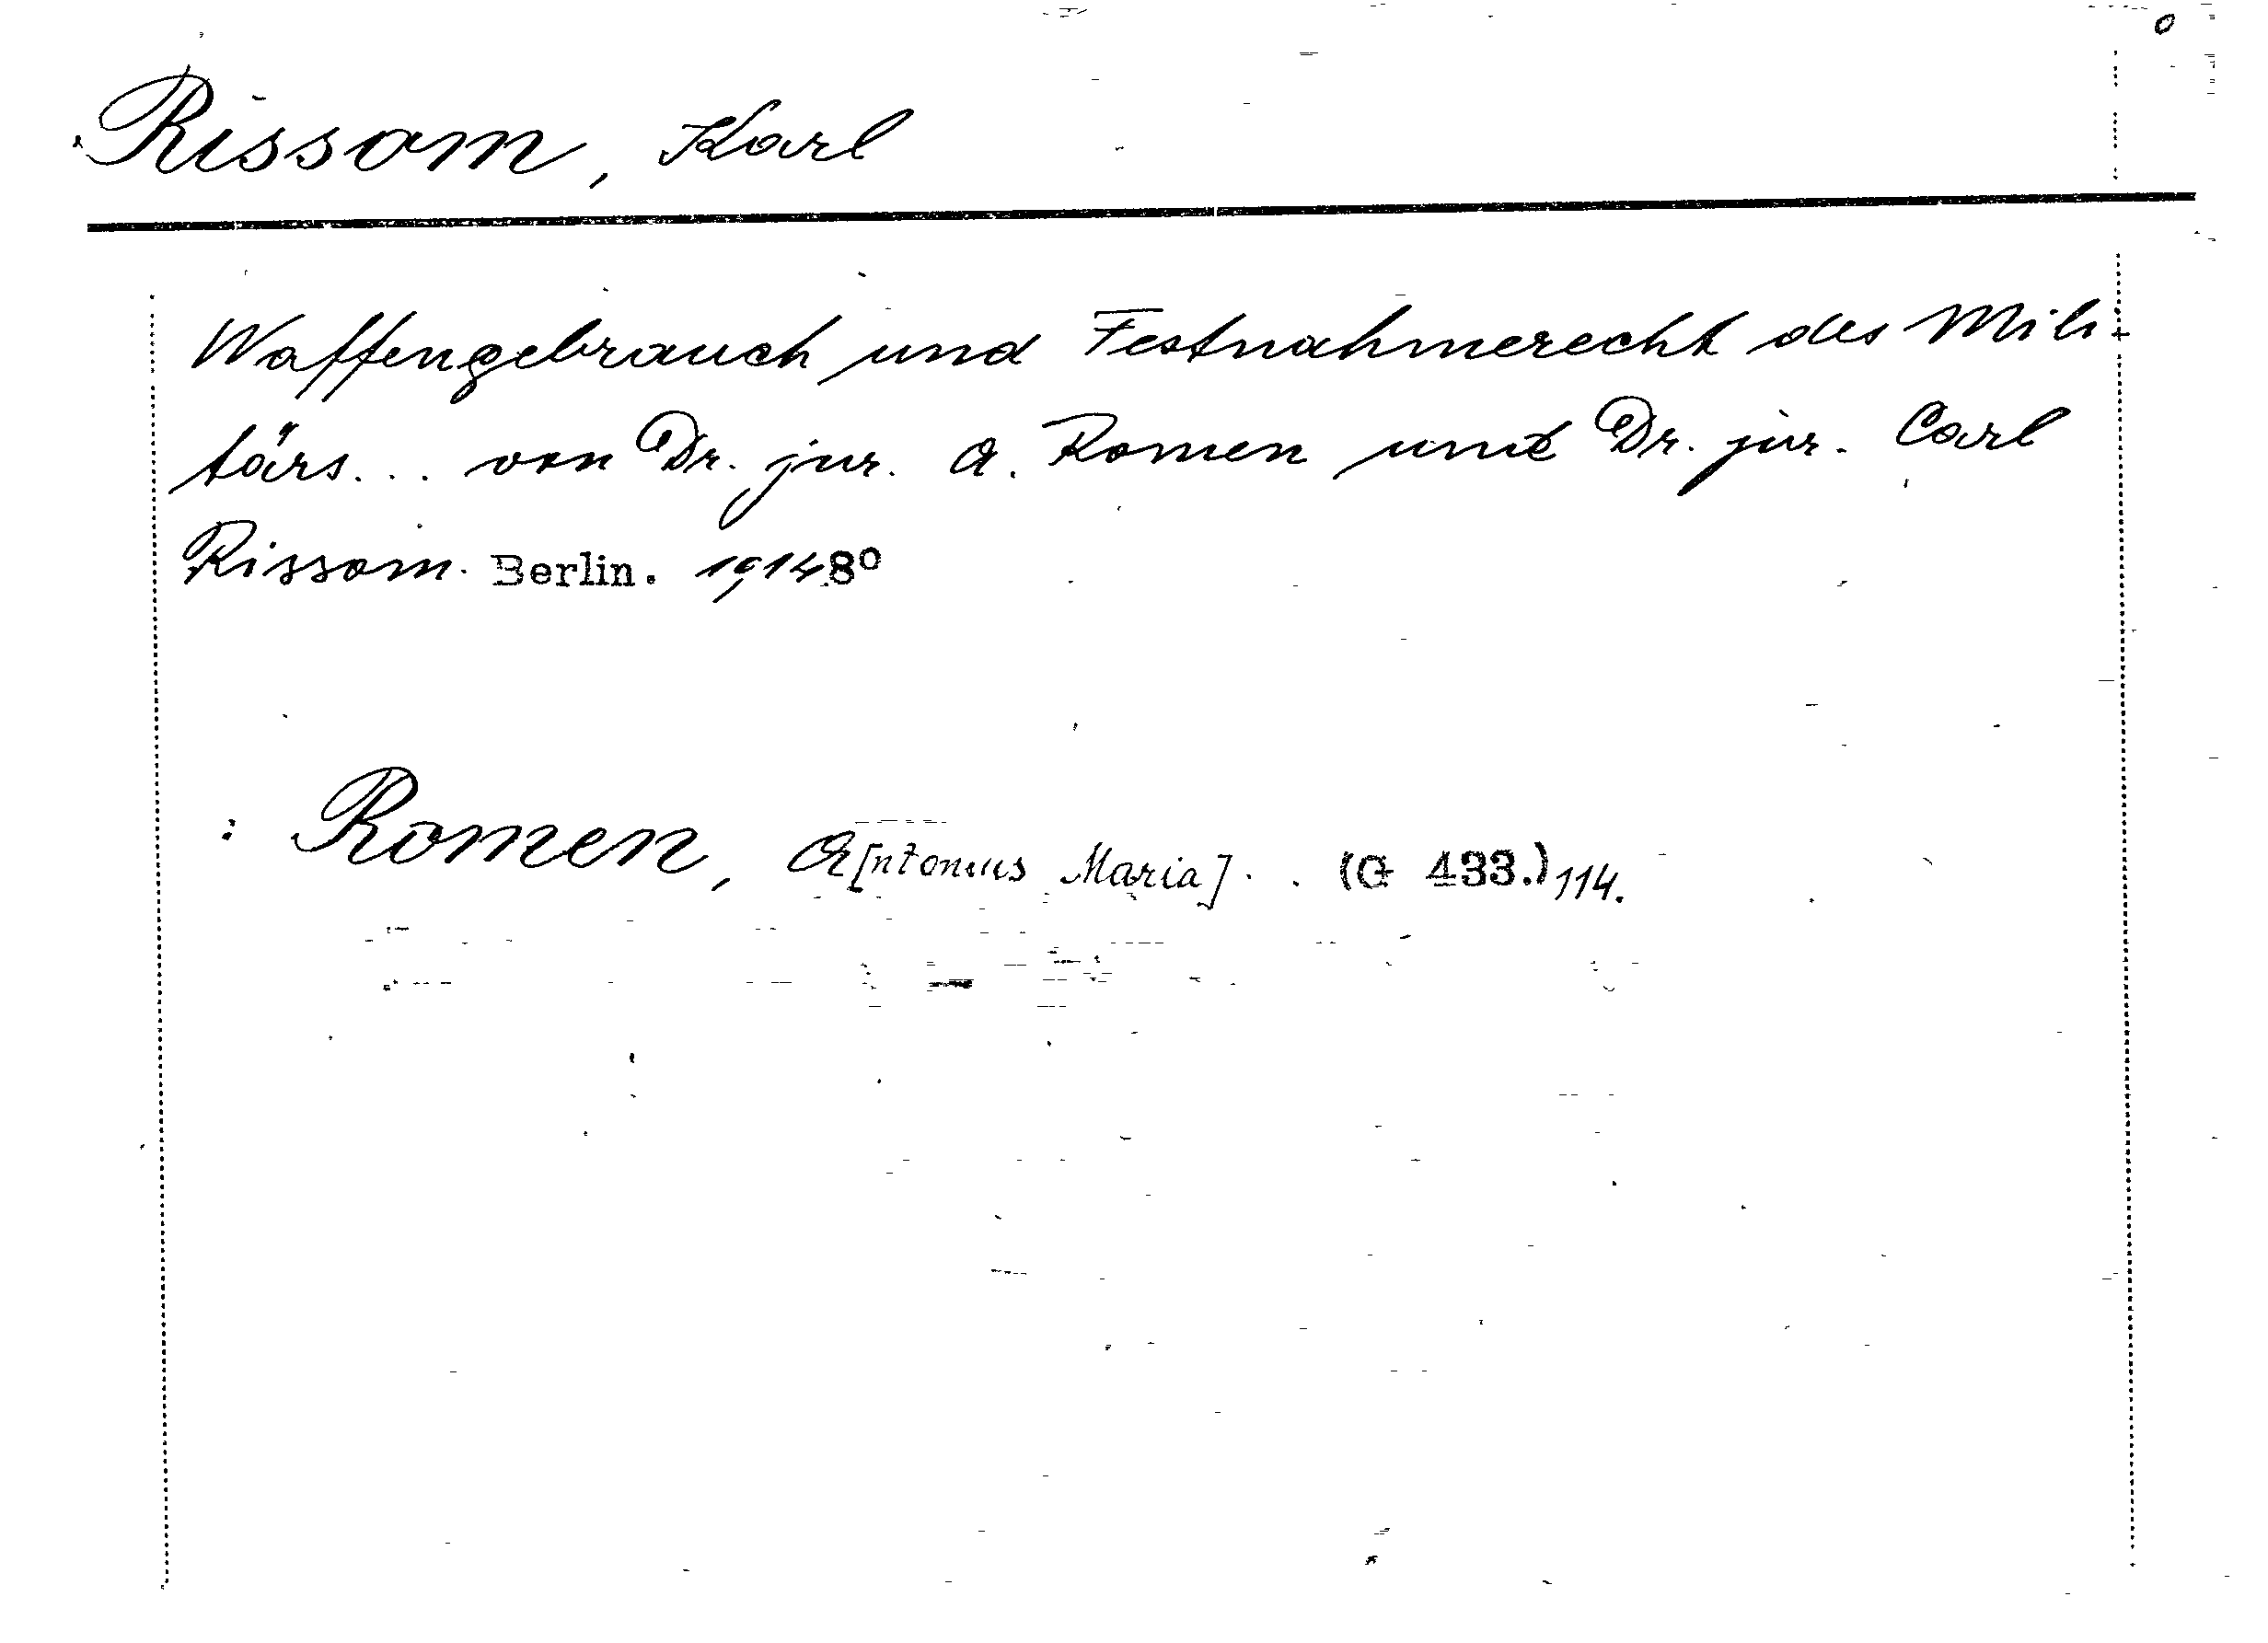 Rissom, Karl
Waffengebrauch und Festnahmerecht des Mili-
tärs... von Dr. jur. A. Romen und Dr. jur. Carl
Rissom. Berlin. 1914 8º
: Romen, A[ntonius Maria] . . (G 433.) 114.